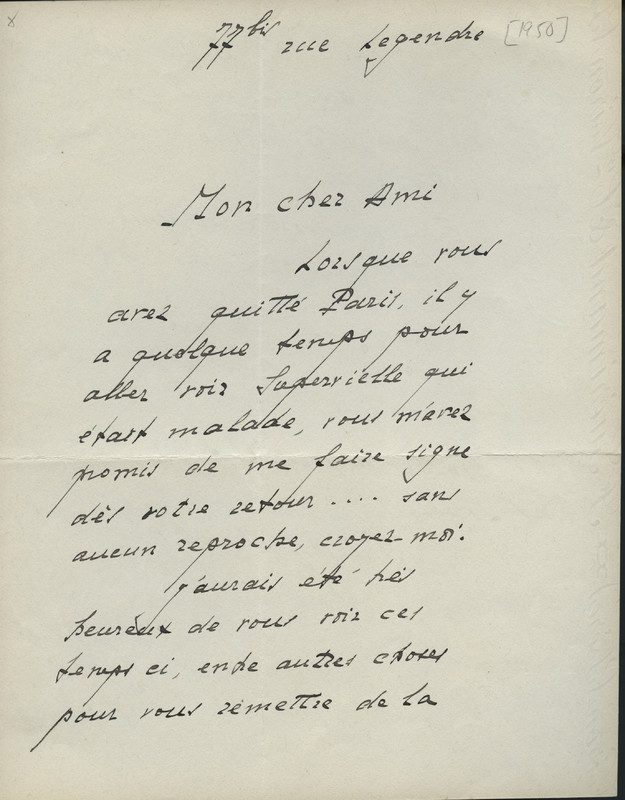 77 bis rue Legendre [1950]
Mon cher Ami
Lorsque vous
avez quitté Paris, il y
a quelque temps pour
aller voir Supervielle qui
était malade, vous m'avez
promis de me faire signe
dès votre retour .... sans
aucun reproche, croyez-moi.
J'aurais été très
heureux de vous voir ces
temps ci, entre autres choses
pour vous remettre de la